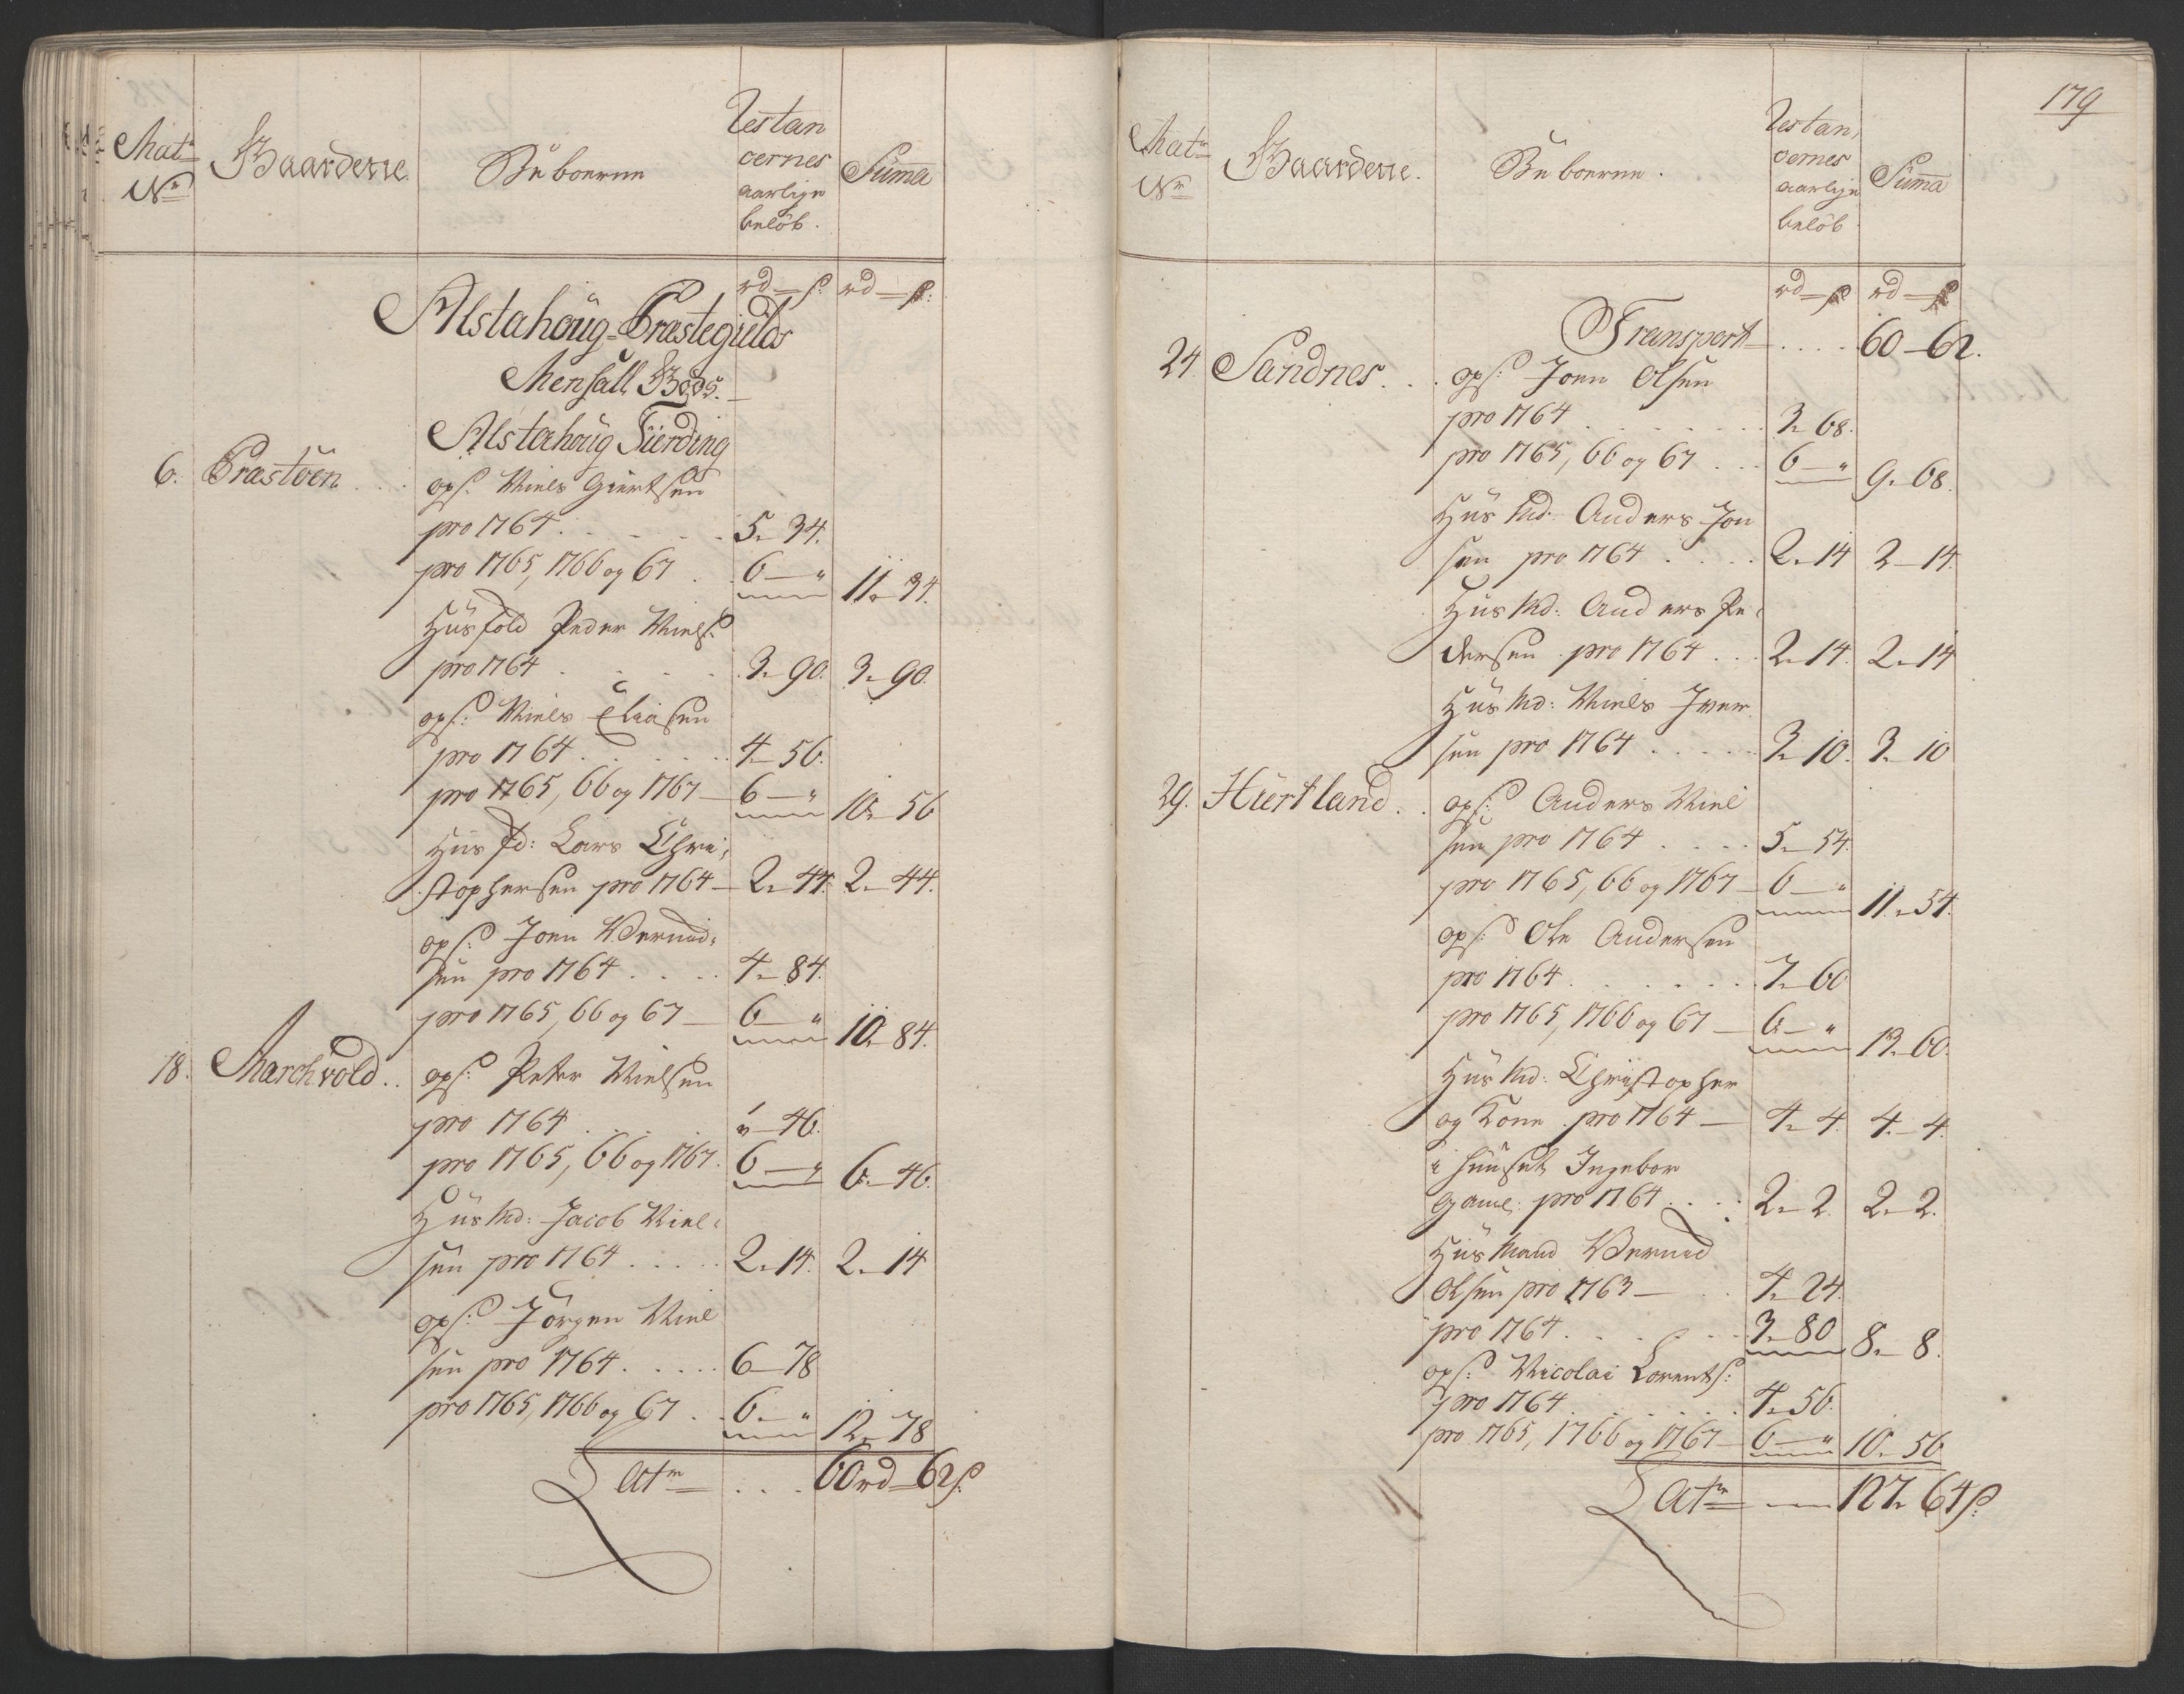 Matr
No
Gaardene.
Beboerne
Restan
cernes
aarlige
beløb.
Suma
rd – s: rd – s:
Alstahoug Præstegields
Mensall Gods.
Alstahoug Fierding
6. Præstøen. . . ops: Niels Giertsen
pro 1764. . . . . 5 – 34.
pro 1765, 1766 og 67 . 6 – " 11 – 34.
Huusfold Peder Niels:
pro 1764 . . . . 3 – 90. 3 – 90.
ops: Niels Eliasen
pro 1764 . . . . 4 – 56.
pro 1765, 66 og 1767 – 6 – " 10 – 56
Huusfd: Lars Chri-
stophersen pro 1764 – 2 – 44. 2 – 44.
ops: Joen Bernd-
sen pro 1764 . . . . 4 – 84.
pro 1765, 66 og 67 – 6 – " 10 – 84.
18. Marchvold . . ops: Peter Nielsen
pro 1764 . . . . " – 46.
pro 1765, 66 og 1767. 6 – " 6 – 46.
Huusmd: Jacob Niel-
sen pro 1764 . . . . . 2 – 14. 2 – 14
ops: Jørgen Niel
sen pro 1764 . . . . . 6 – 78
pro 1765, 1766 og 67 . . 6 – " 12 – 78
Latr . . . 60 rd – 62 s:
179
Matr
Nr
Gaardene.
Beboerne.
Restan,
cernes
aarlige
beløb
Suma
rd – s rd – s
Transport . . . . 60 – 62.
24 Sandnes . . . ops: Joen Olsen
pro 1764 . . . . . . . 3 – 68.
pro 1765, 66 og 67 . . . 6 – " 9 – 68.
Huusmd. Anders Jon
sen pro 1764 . . . . 2 – 14 2 – 14.
Huusmd: Anders Pe-
dersen pro 1764 . . . 2 – 14. 2 – 14
Huusmd: Niels Iver
sen pro 1764 . . . . . 3 – 10. 3 – 10
29. Hiertland . . ops: Anders Niel
sen pro 1764 . . . . 5 – 54.
pro 1765, 66 og 1767 – 6 – " 11 – 54.
ops: Ole Andersen
pro 1764 . . . . . . . 7 – 60
pro 1765, 1766 og 67 – 6 – " 13 – 60.
Huusmd: Christopher
og Kone pro 1764 – 4 – 4. 4 – 4.
i Huuset Ingebor
Gamel: pro 1764 . . . . 2 – 2. 2 – 2.
Huusmand Bernd
Olsen pro 1763 – . 4 – 24.
pro 1764 . . . . . . 3 – 80 8 – 8.
ops: Nicolai Lorents:
pro 1764 . . . . . . . 4 – 56.
pro 1765, 1766 og 1767 – 6 – " 10 – 56
Latr – 127 – 64 s: